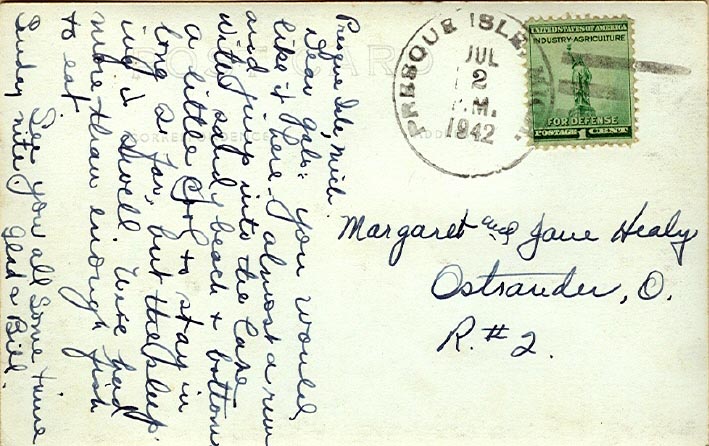 Presque Isle, Mich.
Dear Gals: You would
like it here. almost a run
and jump into the Lake
with sandy beach & bottom
a little cool to stay in
long so far, but the sleep-
ing is swell. We've had
more than enough fish
to eat.
See you all some time
Sunday nite,
Glad & Bill.
POST CARD
CORRESPONDENCE
ADD
PRESQUE ISLE, MICH.
JUL
2
P.M.
1942
UNITED STATES OF AMERICA
INDUSTRY-AGRICULTURE
FOR DEFENSE
POSTAGE 1 CENT
Margaret and Jane Healy
Ostrander, O.
R. # 2.